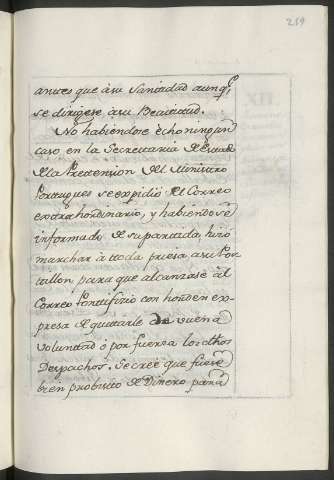 259
antes que à su Santidad aunq.e
se dirigese à su Beatitud.
No habiendose echo ningun
caso en la Secretaria de Estado
de la Pretension del Ministro
Portugues se expidiò el Correo
extrahordinario, y habiendose
informado de su partida hizo
marchar à toda priesa a su Pos
tillon para que alcanzase àl
Correo Pontifizio con horden ex-
presa de quitarle de vuena
voluntad ò por fuerza los dhos
Despachos. Se creè que fuese
bien probisto de Dinero para